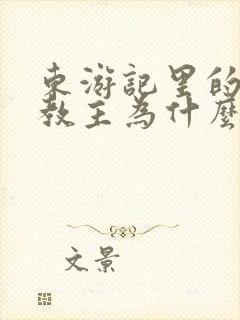 東游記里的
教主為什麼
文景